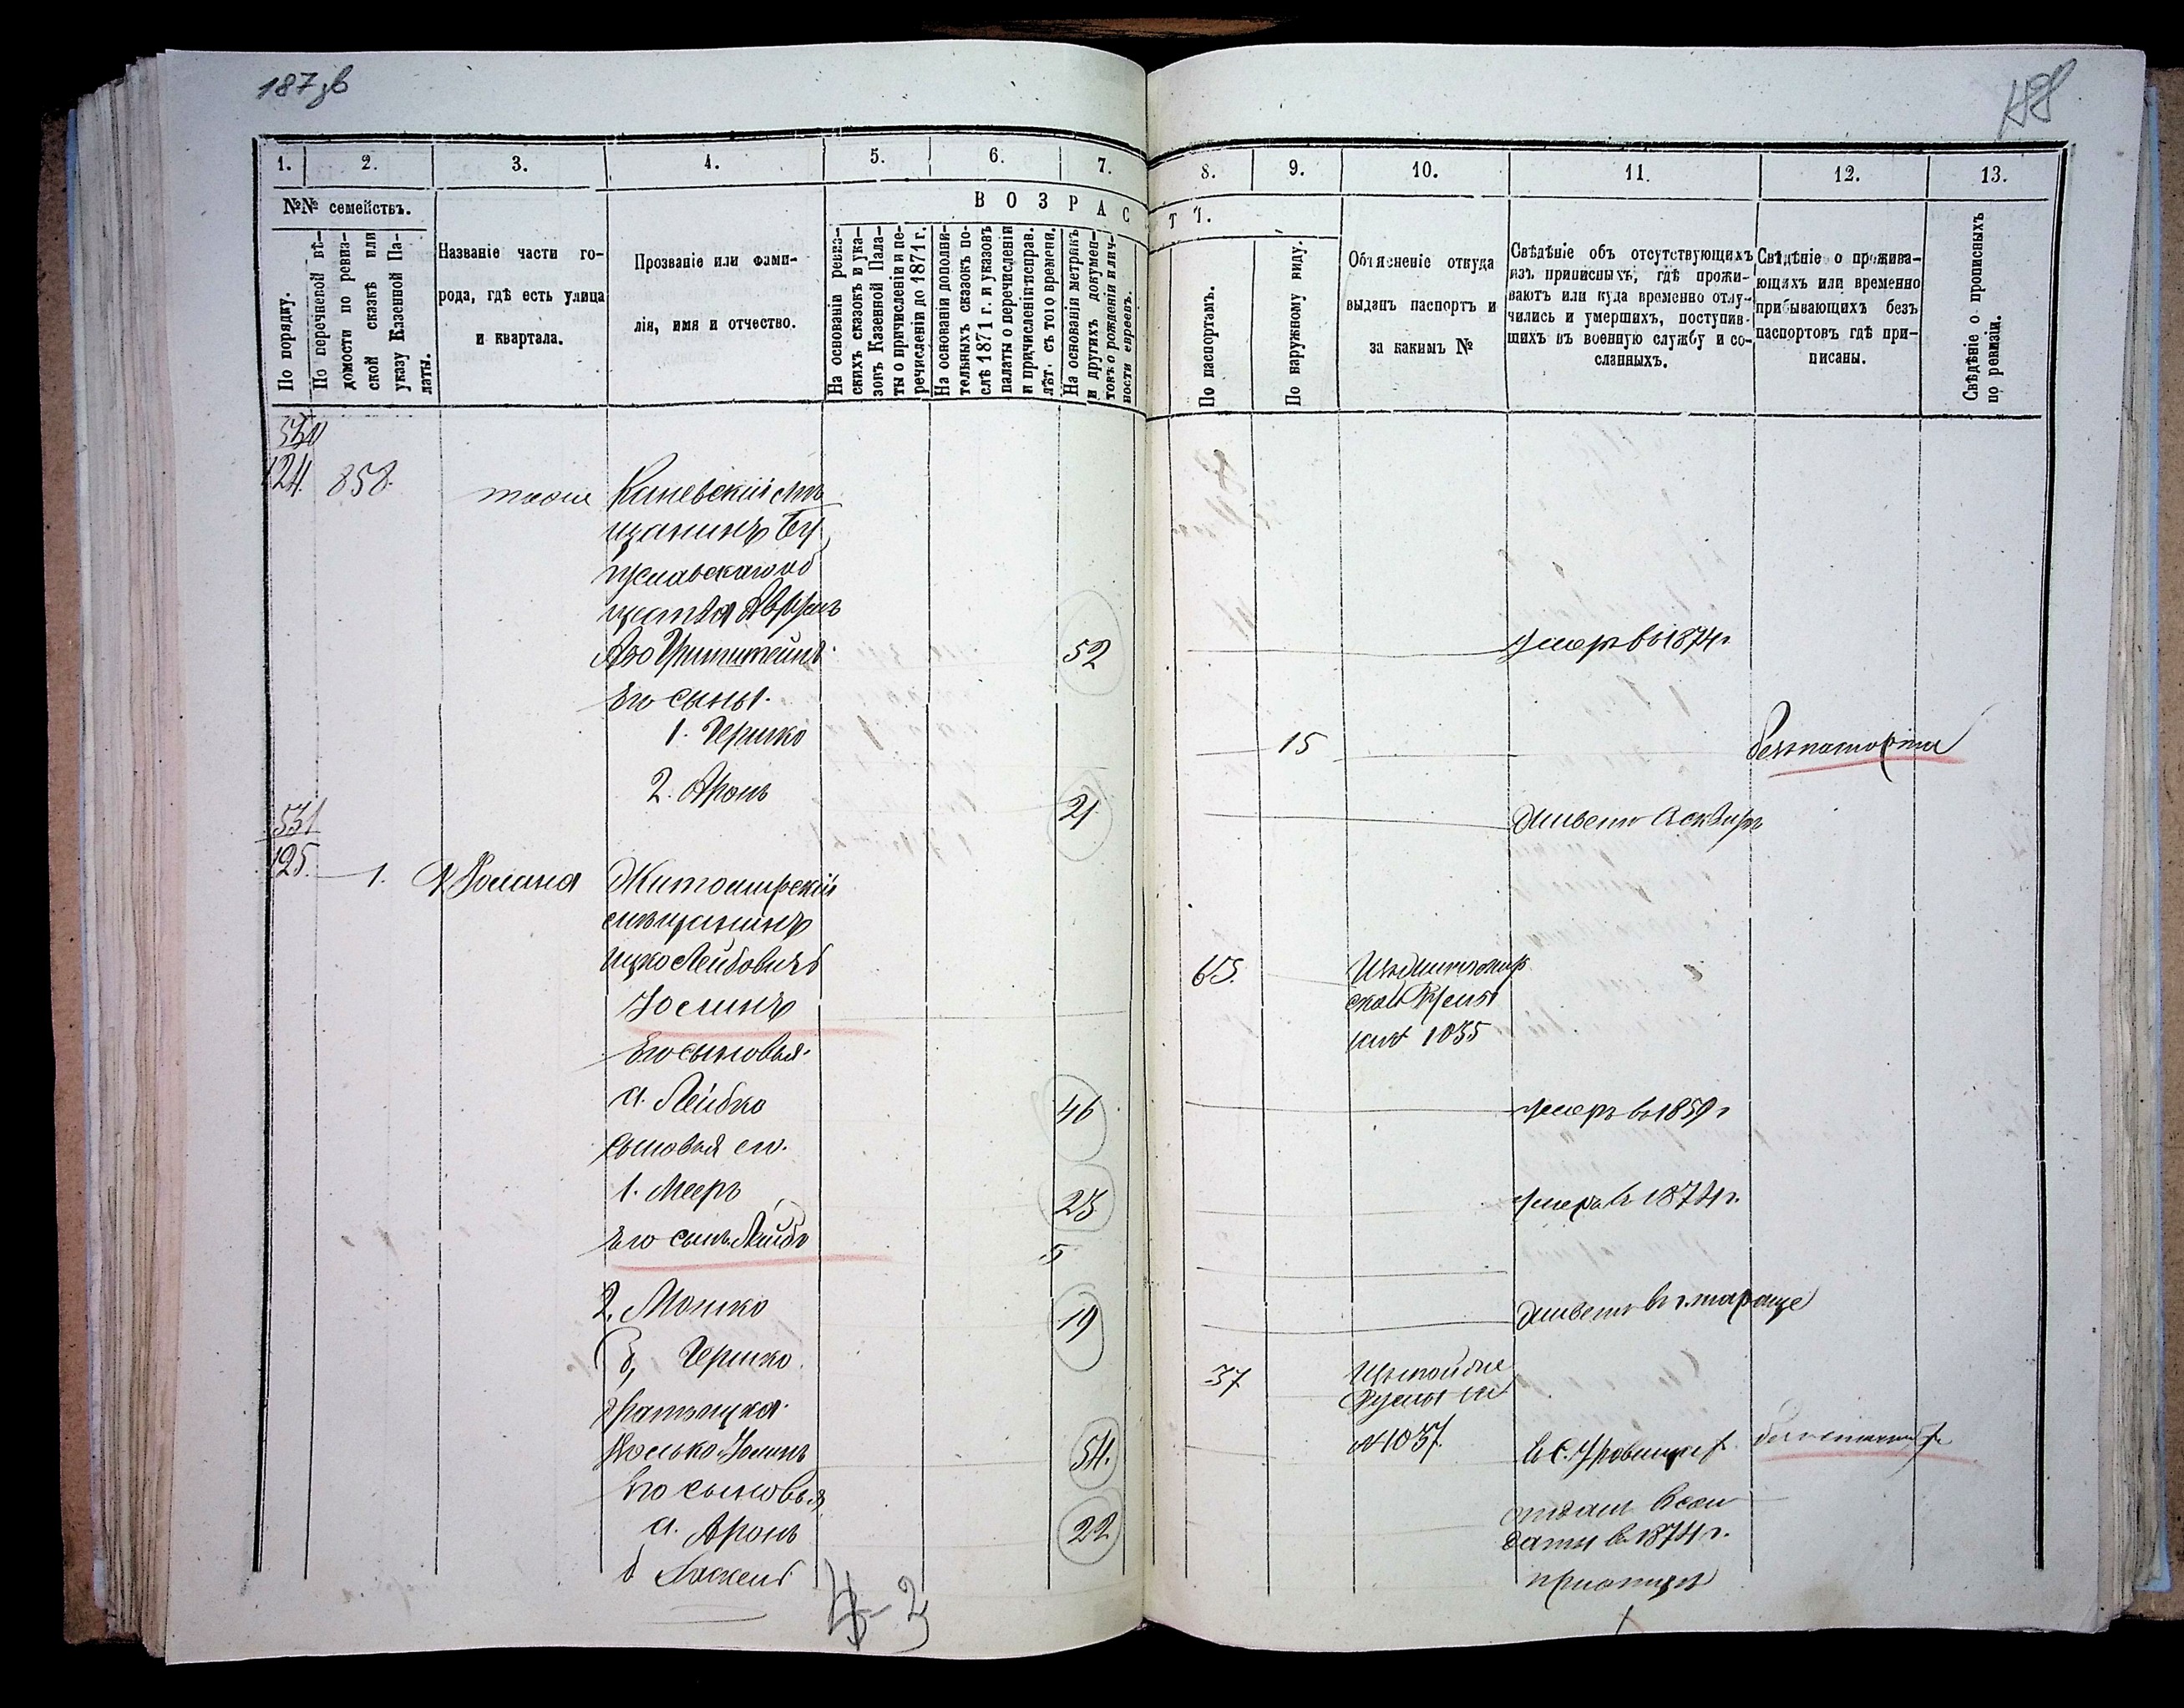 187 об
188
1. 2. 3. 4. 5. 6. 7. 8. 9. 10. 11. 12. 13.
№№ семействъ.
По порядку.
По перечневой вѣ-
домости по ревиз-
ской сказкѣ или
указу Казенной Па-
латы.
Названіе части го-
рода, гдѣ есть улица
и квартала.
Прозваніе или фами-
лія, имя и отчество.
ВОЗРАСТЪ.
На основаніи ревиз-
скихъ сказокъ и ука-
зовъ Казенной Пала-
ты о причисленіи и пе-
речисленіи до 1871 г.
На основаніи дополни-
тельныхъ сказокъ по-
слѣ 1871 г. и указовъ
палаты о перечисленіи
и причисленіи исправ.
лѣт. съ того времени.
На основаніи метрикъ
и другихъ докумен-
товъ о рожденіи и лич-
ности евреевъ.
По паспортамъ.
По наружному виду.
Объясненіе откуда
выданъ паспортъ и
за какимъ №
Свѣдѣніе объ отсутствующихъ
изъ приписныхъ, гдѣ прожи-
ваютъ или куда временно отлу-
чились и умершихъ, поступив-
шихъ въ военную службу и со-
сланныхъ.
Свѣдѣніе о прожива-
ющихъ или временно
прибывающихъ безъ
паспортовъ гдѣ при-
писаны.
Свѣдѣніе о прописныхъ
по ревизіи.
530
124. 858. тоже Каневскій мѣ
щанинъ Бу
гуславскаго об
щества Аврумъ
Гринштейнъ 52 умеръ въ 1874 г
Его сыны.
1. Гершко 15 безпаспорта
2. Аронъ 21 живетъ
531
125. 1. Житомирскій
мѣщанинъ
Ицко Лейбовичъ 65. Изъ Житомир
Юсимъ ской Думы
1035
Его сыновья.
а. Лейбко 46 умеръ въ 1859 г
сыновья его.
1. Мееръ 23 умеръ въ 1874 г.
Его сынъ Лейба 5
2. Мошко 19 живетъ въ г. Тараще
б, Гершко. 37 Изъ той же
Думы за
№ 1037.
братъ Ицка
Иосько 54. в с.
Его сыновья
а. Аронъ 22 отданъ в сол
даты в 1874 г.
б
4-2